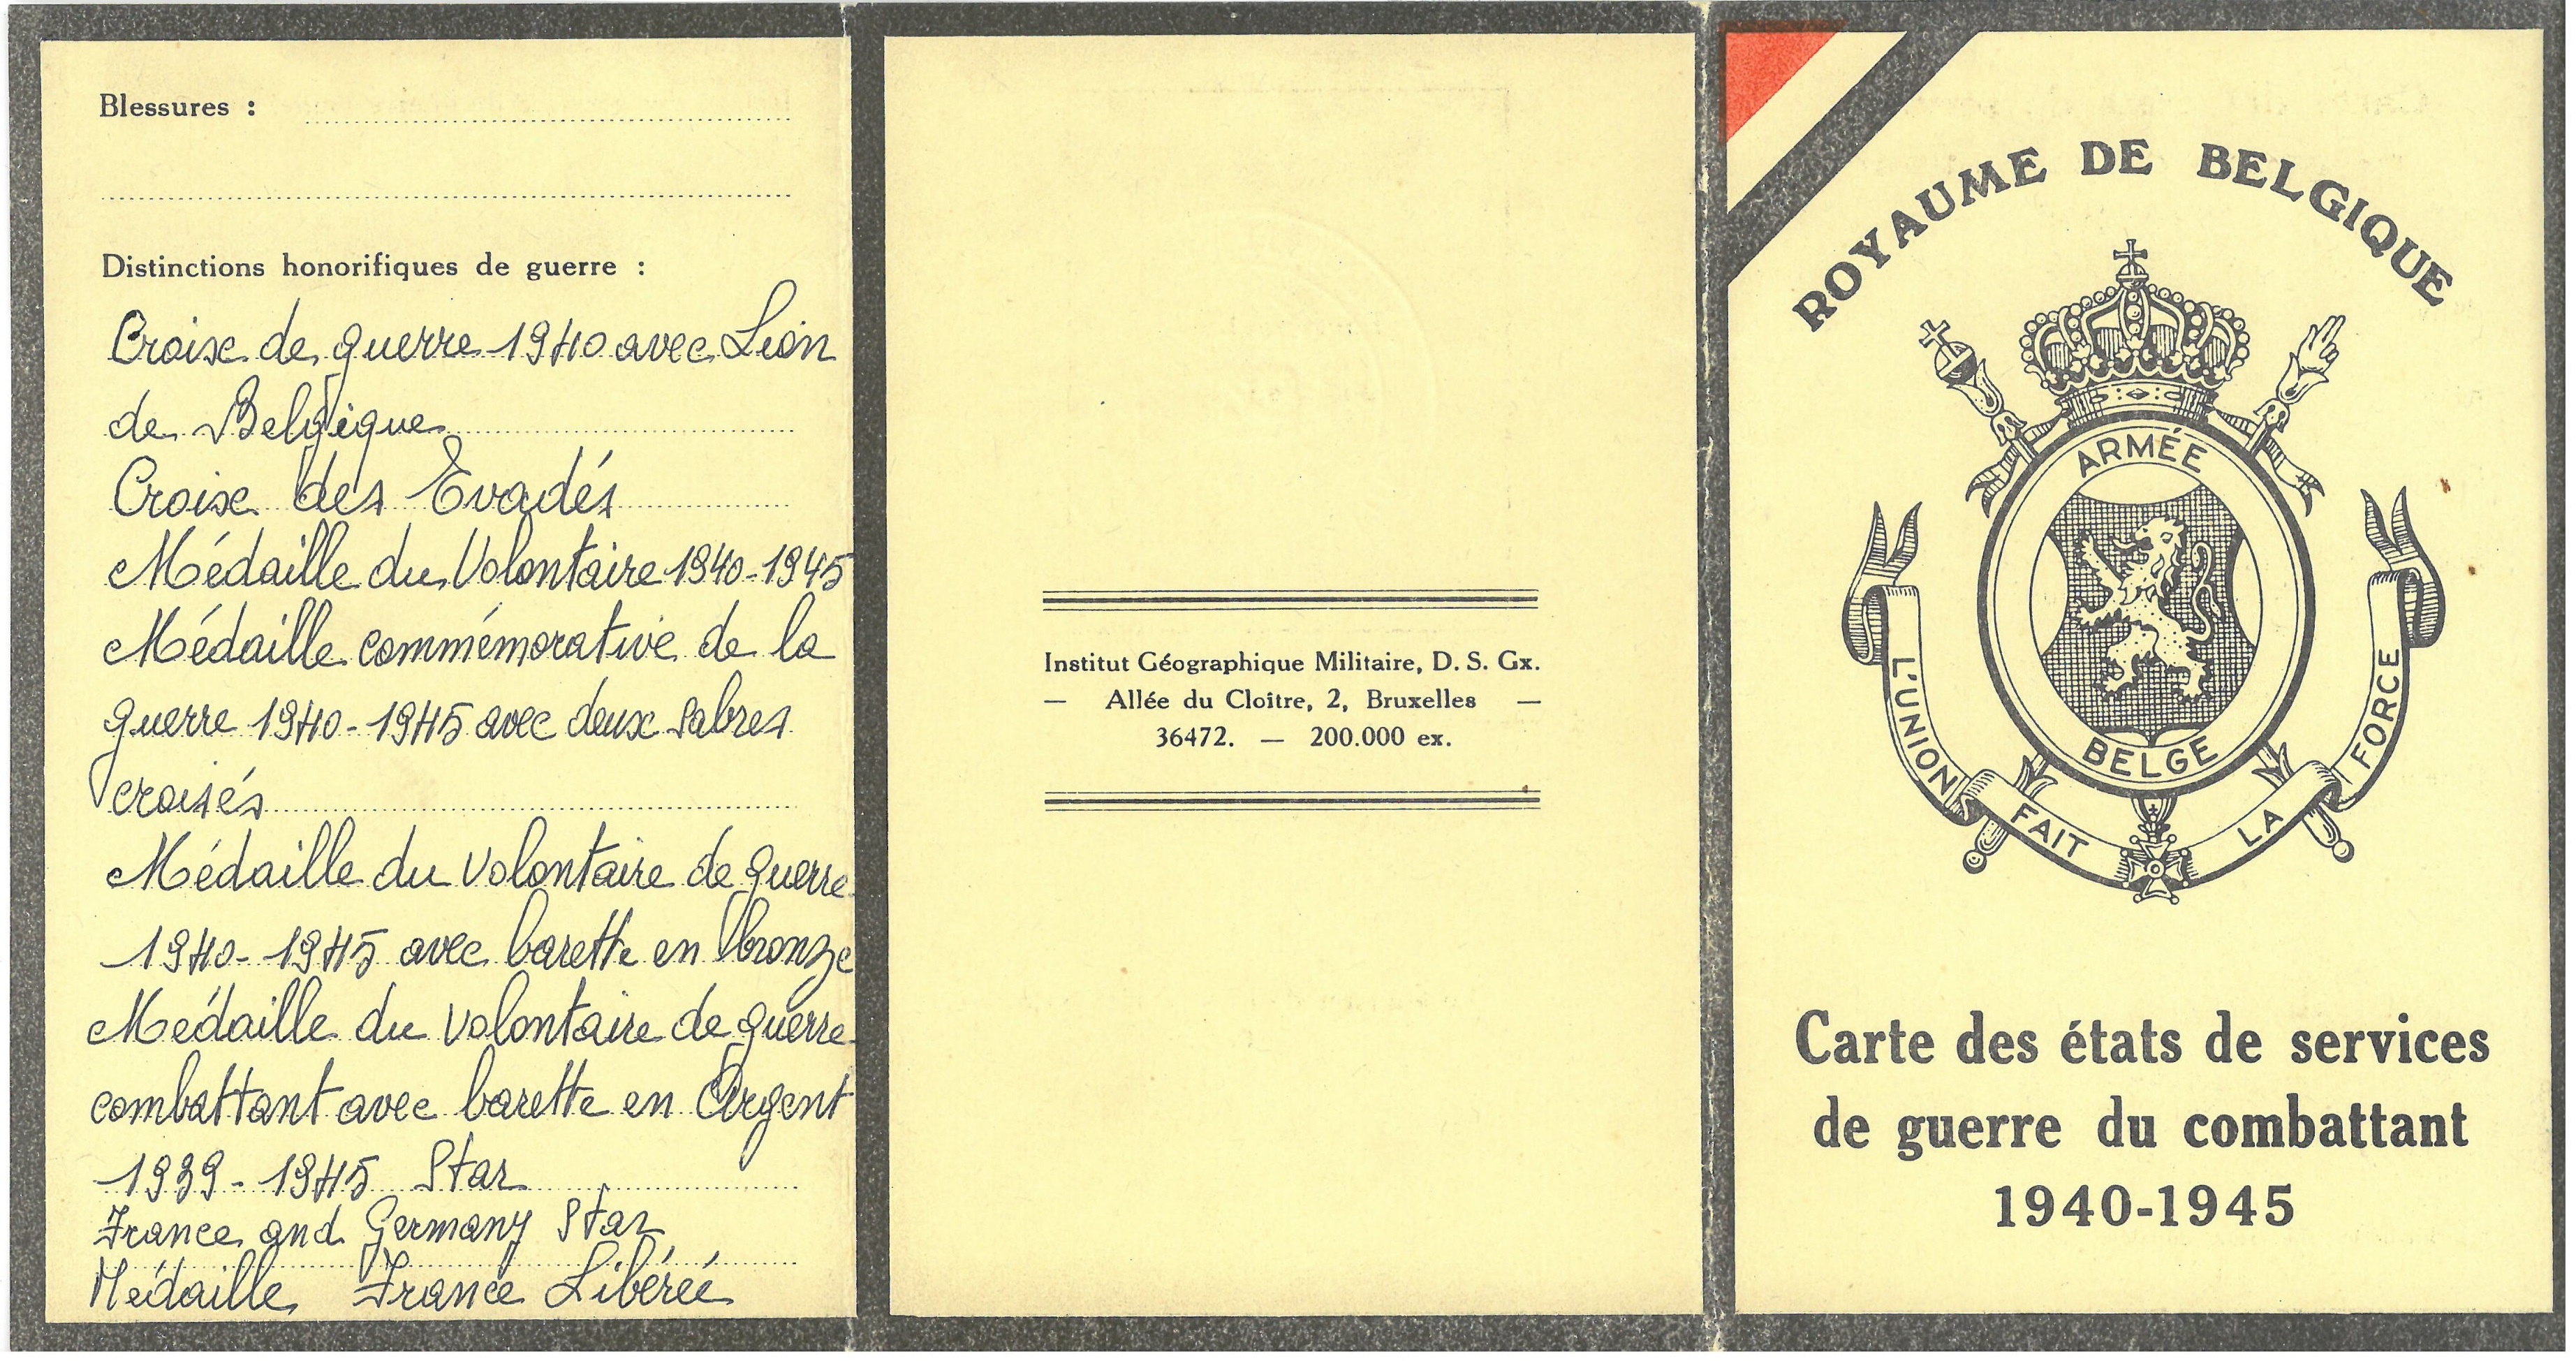 Blessures :
Distinctions honorifiques de guerre :
Croix de guerre 1940 avec Lion
de Belgique
Croix des Evadés
Médaille du Volontaire 1940-1945
Médaille commémorative de la
guerre 1940-1945 avec deux sabres
croisés
Médaille du volontaire de guerre
1940-1945 avec barette en bronze
Médaille du volontaire de guerre
combattant avec barette en Argent
1939-1945 Star
France and Germany Star
Médaille France Libérée
Institut Géographique Militaire, D. S. Gx.
— Allée du Cloître, 2, Bruxelles —
36472. — 200.000 ex.
ROYAUME DE BELGIQUE
ARMÉE
BELGE
L'UNION FAIT LA FORCE
Carte des états de services
de guerre du combattant
1940-1945